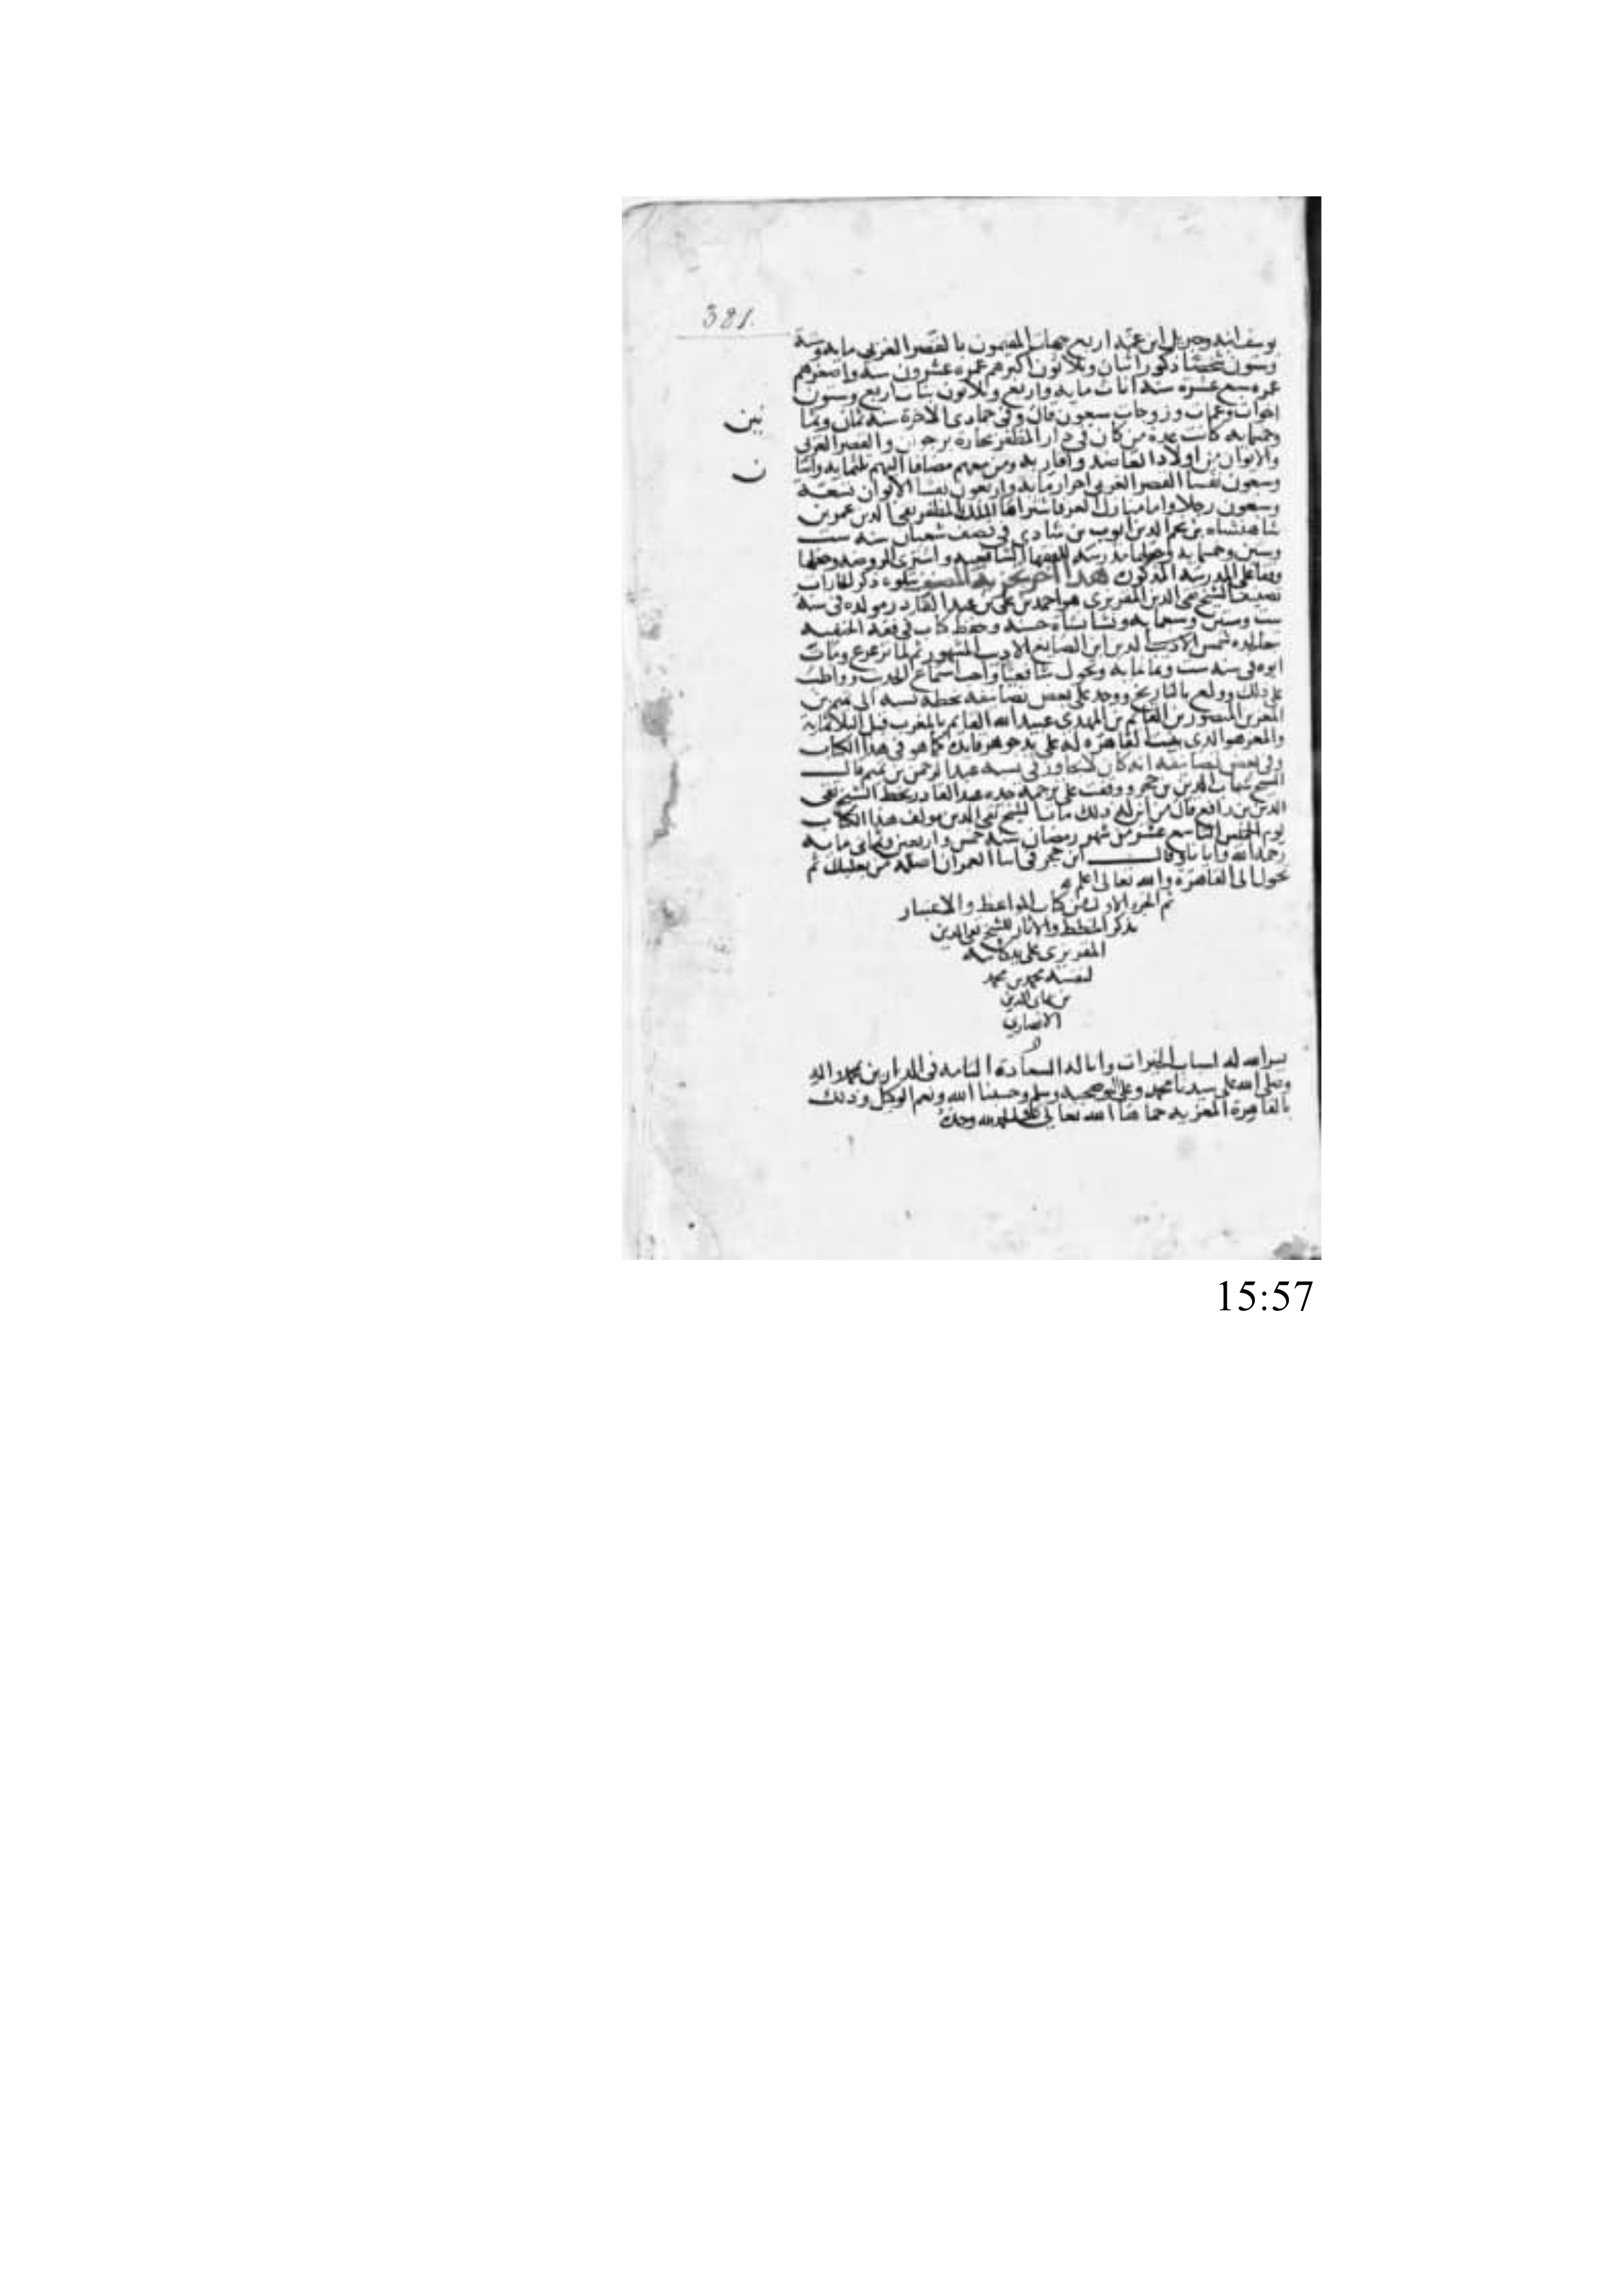 381.
يوسف ابنه وجبريل ابن عمه اربع جهات المقيمون بالقصر الغربي مايه وستة
وستون شخصا ذكور اثنان وثلاثون اكبرهم عمره عشرون سنة واصغرهم
عمره سبع عشرة سنه اناث مايه واربع وثلاثون بنات اربع وستون
اخوات وعمات وزوجات سبعون قال وفي جمادى الاخرة سنه ثمان وثما
نين
وخمسمايه كانت عدة من كان في دار المظفر بحارة برجوان والقصر الغربي
والايوان من اولاد العاضد واقاربه ومن معهم مضافا اليهم ثلثمايه واثنا
ن
وسبعون نفسا القصر الغربي احرار مايه واربعون نفسا الايوان تسعة
وسبعون رجلا واما منازل العز فاشتراها الملك المظفر تقي الدين عمر بن
شاهنشاه بن نجم الدين ايوب بن شادي في نصف شعبان سنه ست
وستين وخمسمايه وجعلها مدرسه للفقها الشافعيه واشترى الروضه وجعلها
وقفا على المدرسه المذكورة هذا اخر تجزية المصنف يتلوه ذكر الحارات
تصنيف الشيخ تقي الدين المقريزي هو احمد بن علي بن عبد القادر مولده في سنة
ست وستين وسبعمايه ونشا نشاة حسنه وحفظ كتاب في فقه الحنفيه
لجده شمس الدين ابن الصايغ الاديب المشهور ثم لما ترعرع ومات
ابوه في سنه ست وثمانمايه وتحول شافعيا واحب اسماع الحديث وواظب
على ذلك وولع بالتاريخ ووجد على بعض تصانيفه بخطه نسبه الى تميم بن
المعز بن المنصور بن القايم بن المهدي عبيد الله القائم بالمغرب قبل الثلاثمائة
والمعز هو الذي بنيت القاهره له على يد جوهر قايده كما هو في هذا الكتاب
وفي بعض تصانيفه انه كان لا يتجاوز في نسبه عبد الرحمن بن تميم قال
الشيخ شهاب الدين بن حجر ووقفت على ترجمة جده عبد القادر بخط الشيخ تقي
الدين بن رافع قال من اين له ذلك مات الشيخ تقي الدين مولف هذا الكتاب
يوم الخميس التاسع عشر من شهر رمضان سنة خمس واربعين وثماني مايه
رحمه الله وايانا وقال ابن حجر في انبا العمر ان اصله من بعلبك ثم
تحول الى القاهرة والله تعالى اعلم
تم الجزء الاول من كتاب المواعظ والاعتبار
بذكر الخطط والاثار للشيخ تقي الدين
المقريزي على يد كاتبه
لنفسه محمد بن محمد
بن الدين
الانصاري
يسر الله له اسباب الخيرات وانا له السعادة التامه في الدارين بمحمد واله
وصلى الله على سيدنا محمد وعلى اله وصحبه وسلم وحسبنا الله ونعم الوكيل وذلك
بالقاهرة المعزيه حماها الله تعالى والحمد لله وحده
15:57